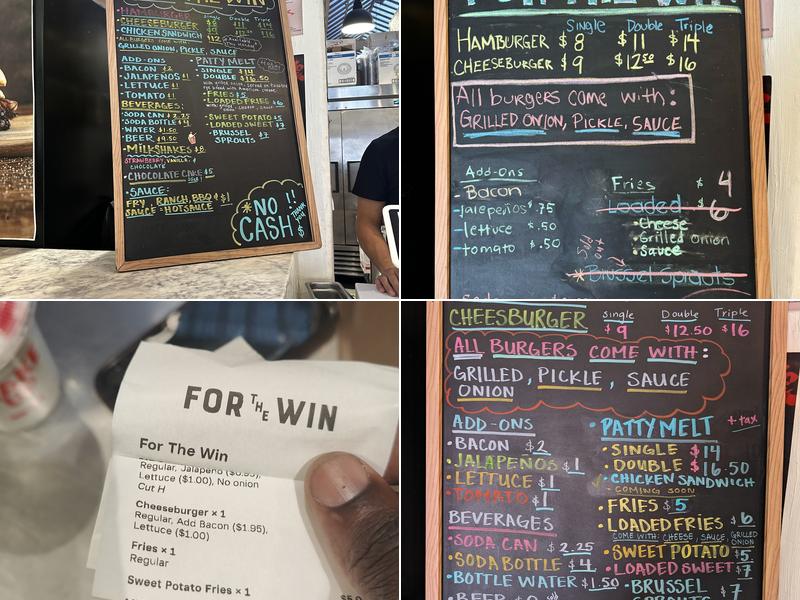 THE WIN
HAMBURGER
Single Double Triple
$8 11 $14
CHEESEBURGER
CHICKEN SANDWICH
$12
ALL BURGERS COME WITH
GRILLED ONION, PICKLE, SAUCE
ADD-ONS
• BACON $2
• JALAPEÑOS $1
• LETTUCE $1
• TOMATO $1
BEVERAGES:
SODA CAN $2.25
SODA BOTTLE $4
WATER $1.50
• BEER $9.50
• MILKSHAKES $8
STRAWBERRY, VANILLA, &
CHOCOLATE
• CHOCOLATE CAKE $5
• SAUCE:
FRY, RANCH, BBQ & $1
SAUCE • HOTSAUCE
PATTY MELT
• SINGLE $14
• DOUBLE $16.50
• FRIES $5
• LOADED FRIES $6
• SWEET POTATO $5
• LOADED SWEET $7
• BRUSSEL
SPROUTS $7
* NO
CASH !!
THANK
YOU
Single Double Triple
HAMBURGER $8 $11 $14
CHEESEBURGER $9 $12.50 $16
All burgers come with:
GRILLED ONION, PICKLE, SAUCE
Add-Ons
- Bacon
- Jalepeños $.75
- lettuce $.50
- tomato $.50
Fries $4
Loaded $6
• Cheese
• Grilled onion
• Sauce
Sold out
* Brussel Sprouts
FOR THE WIN
For The Win
Regular, Jalapeno ($0.95),
Lettuce ($1.00), No onion
Cut H
Cheeseburger × 1
Regular, Add Bacon ($1.95),
Lettuce ($1.00)
Fries × 1
Regular
Sweet Potato Fries × 1
CHEESBURGER
Single Double Triple
$9 $12.50 $16
ALL BURGERS COME WITH:
GRILLED, PICKLE, SAUCE
ONION
ADD-ONS
• BACON $2
• JALAPEÑOS $1
• LETTUCE $1
• TOMATO $1
BEVERAGES
• SODA CAN $2.25
• SODA BOTTLE $4
• BOTTLE WATER $1.50
• BEER
• PATTYMELT + tax
• SINGLE $14
• DOUBLE $16.50
• CHICKEN SANDWICH
- COMING SOON
• FRIES $5
• LOADED FRIES $6
COME WITH: CHEESE, SAUCE, GRILLED
ONION
• SWEET POTATO $5
• LOADED SWEET $7
• BRUSSEL
SPROUTS $7